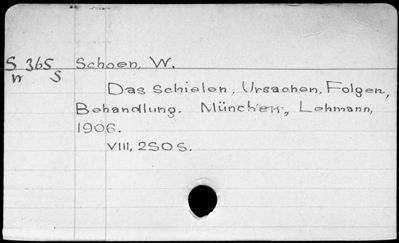 S 365 Schoen, W.
W S
Das Schielen, Ursachen, Folgen,
Behandlung. München, Lehmann,
1906.
VIII, 250 S.